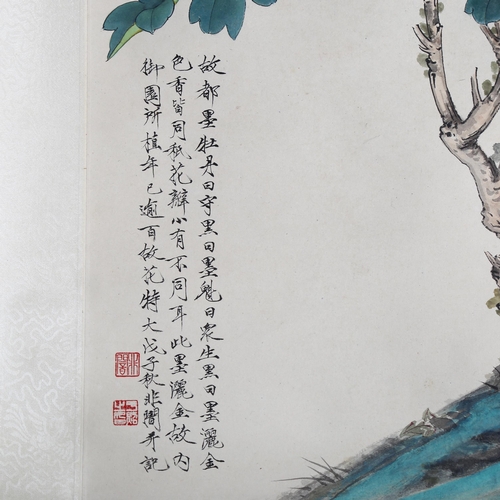 故都墨牡丹曰守黑曰墨魁曰众生黑曰墨灑金
色香皆同秖花瓣小有不同耳此墨灑金故内
御園所植年已逾百故花特大戊子秋非闇并記